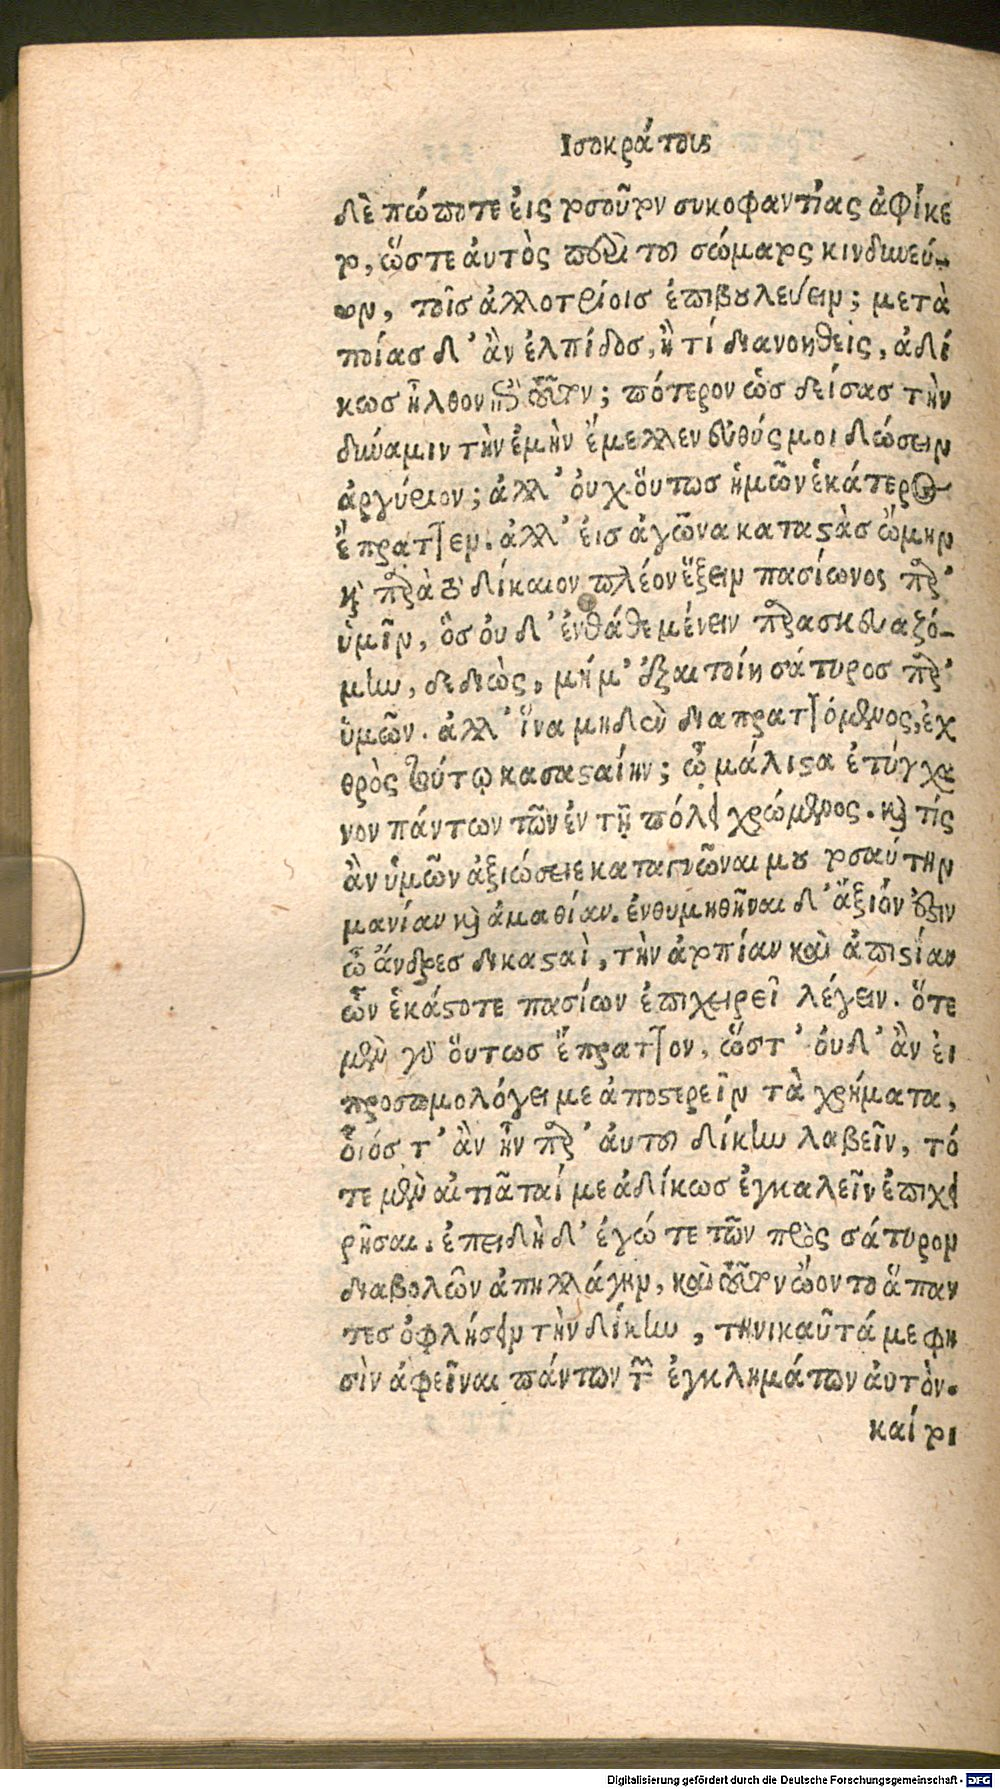 Ισοκράτους
δὲ πώποτε εἰς τοσοῦτον συκοφαντίας ἀφίκε
το, ὥστε ἀυτὸς περὶ τοῦ σώματος κινδυνεύ-
ων, τοῖς ἀλλοτρίοις ἐπιβουλεύειν; μετὰ
ποίας δ' ἂν ἐλπίδος, ἢ τί διανοηθεὶς, ἀδί
κως ἦλθον ἐπὶ τοῦτον; πότερον ὡς δείσας τὴν
δύναμιν τὴν ἐμὴν ἔμελλεν εὐθύς μοι δώσειν
ἀργύριον; ἀλλ' ὀυχ ὅυτως ἡμῶν ἑκάτερος
ἔπραττεν. ἀλλ' εἰς ἀγῶνα καταστὰς ὤμην
καὶ παρὰ τὸ δίκαιον πλέον ἕξειν πασίωνος παρ'
ὑμῖν, ὃς ὀυδ' ἐνθάδε μένειν παρασκευαζό-
μην, δεδιὼς, μή μ' ἐξαιτοίη σάτυρος παρ'
ὑμῶν. ἀλλ' ἵνα μηδὲν διαπραττόμενος, ἐχ
θρὸς τούτῳ κατασταίην; ᾧ μάλιστα ἐτύγχα
νον πάντων τῶν ἐν τῇ πόλει χρώμενος. καὶ τίς
ἂν ὑμῶν ἀξιώσειε καταγνῶναι μου τοσαύτην
μανίαν καὶ ἀμαθίαν. ἐνθυμηθῆναι δ' ἄξιόν ἐστιν
ὦ ἄνδρες δικασταὶ, τὴν ἀτοπίαν καὶ ἀπιστίαν
ὧν ἑκάστοτε πασίων ἐπιχειρεῖ λέγειν. ὅτε
μὲν γὰρ ὅυτως ἔπραττον, ὥστ' ὀυδ' ἂν ἐι
προσωμολόγει με ἀποστερεῖν τὰ χρήματα,
ὁῖός τ' ἂν ἦν παρ' ἀυτοῦ δίκην λαβεῖν, τό
τε μὲν αἰτιᾶταί με ἀδίκως ἐγκαλεῖν ἐπιχει
ρῆσαι. ἐπειδὴ δ' ἐγώ τε τῶν πρὸς σάτυρον
διαβολῶν ἀπηλλάγην, καὶ τοῦτον ᾤοντο ἅπαν
τες ὀφλήσειν τὴν δίκην, τηνικαῦτά με φη
σὶν ἀφεῖναι πάντων τῶν ἐγκλημάτων ἀυτὸν.
καί τοι
Digitalisierung gefördert durch die Deutsche Forschungsgemeinschaft - DFG